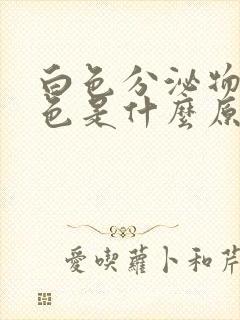 白色分泌物
色是什麼原
愛喫蘿卜和芹